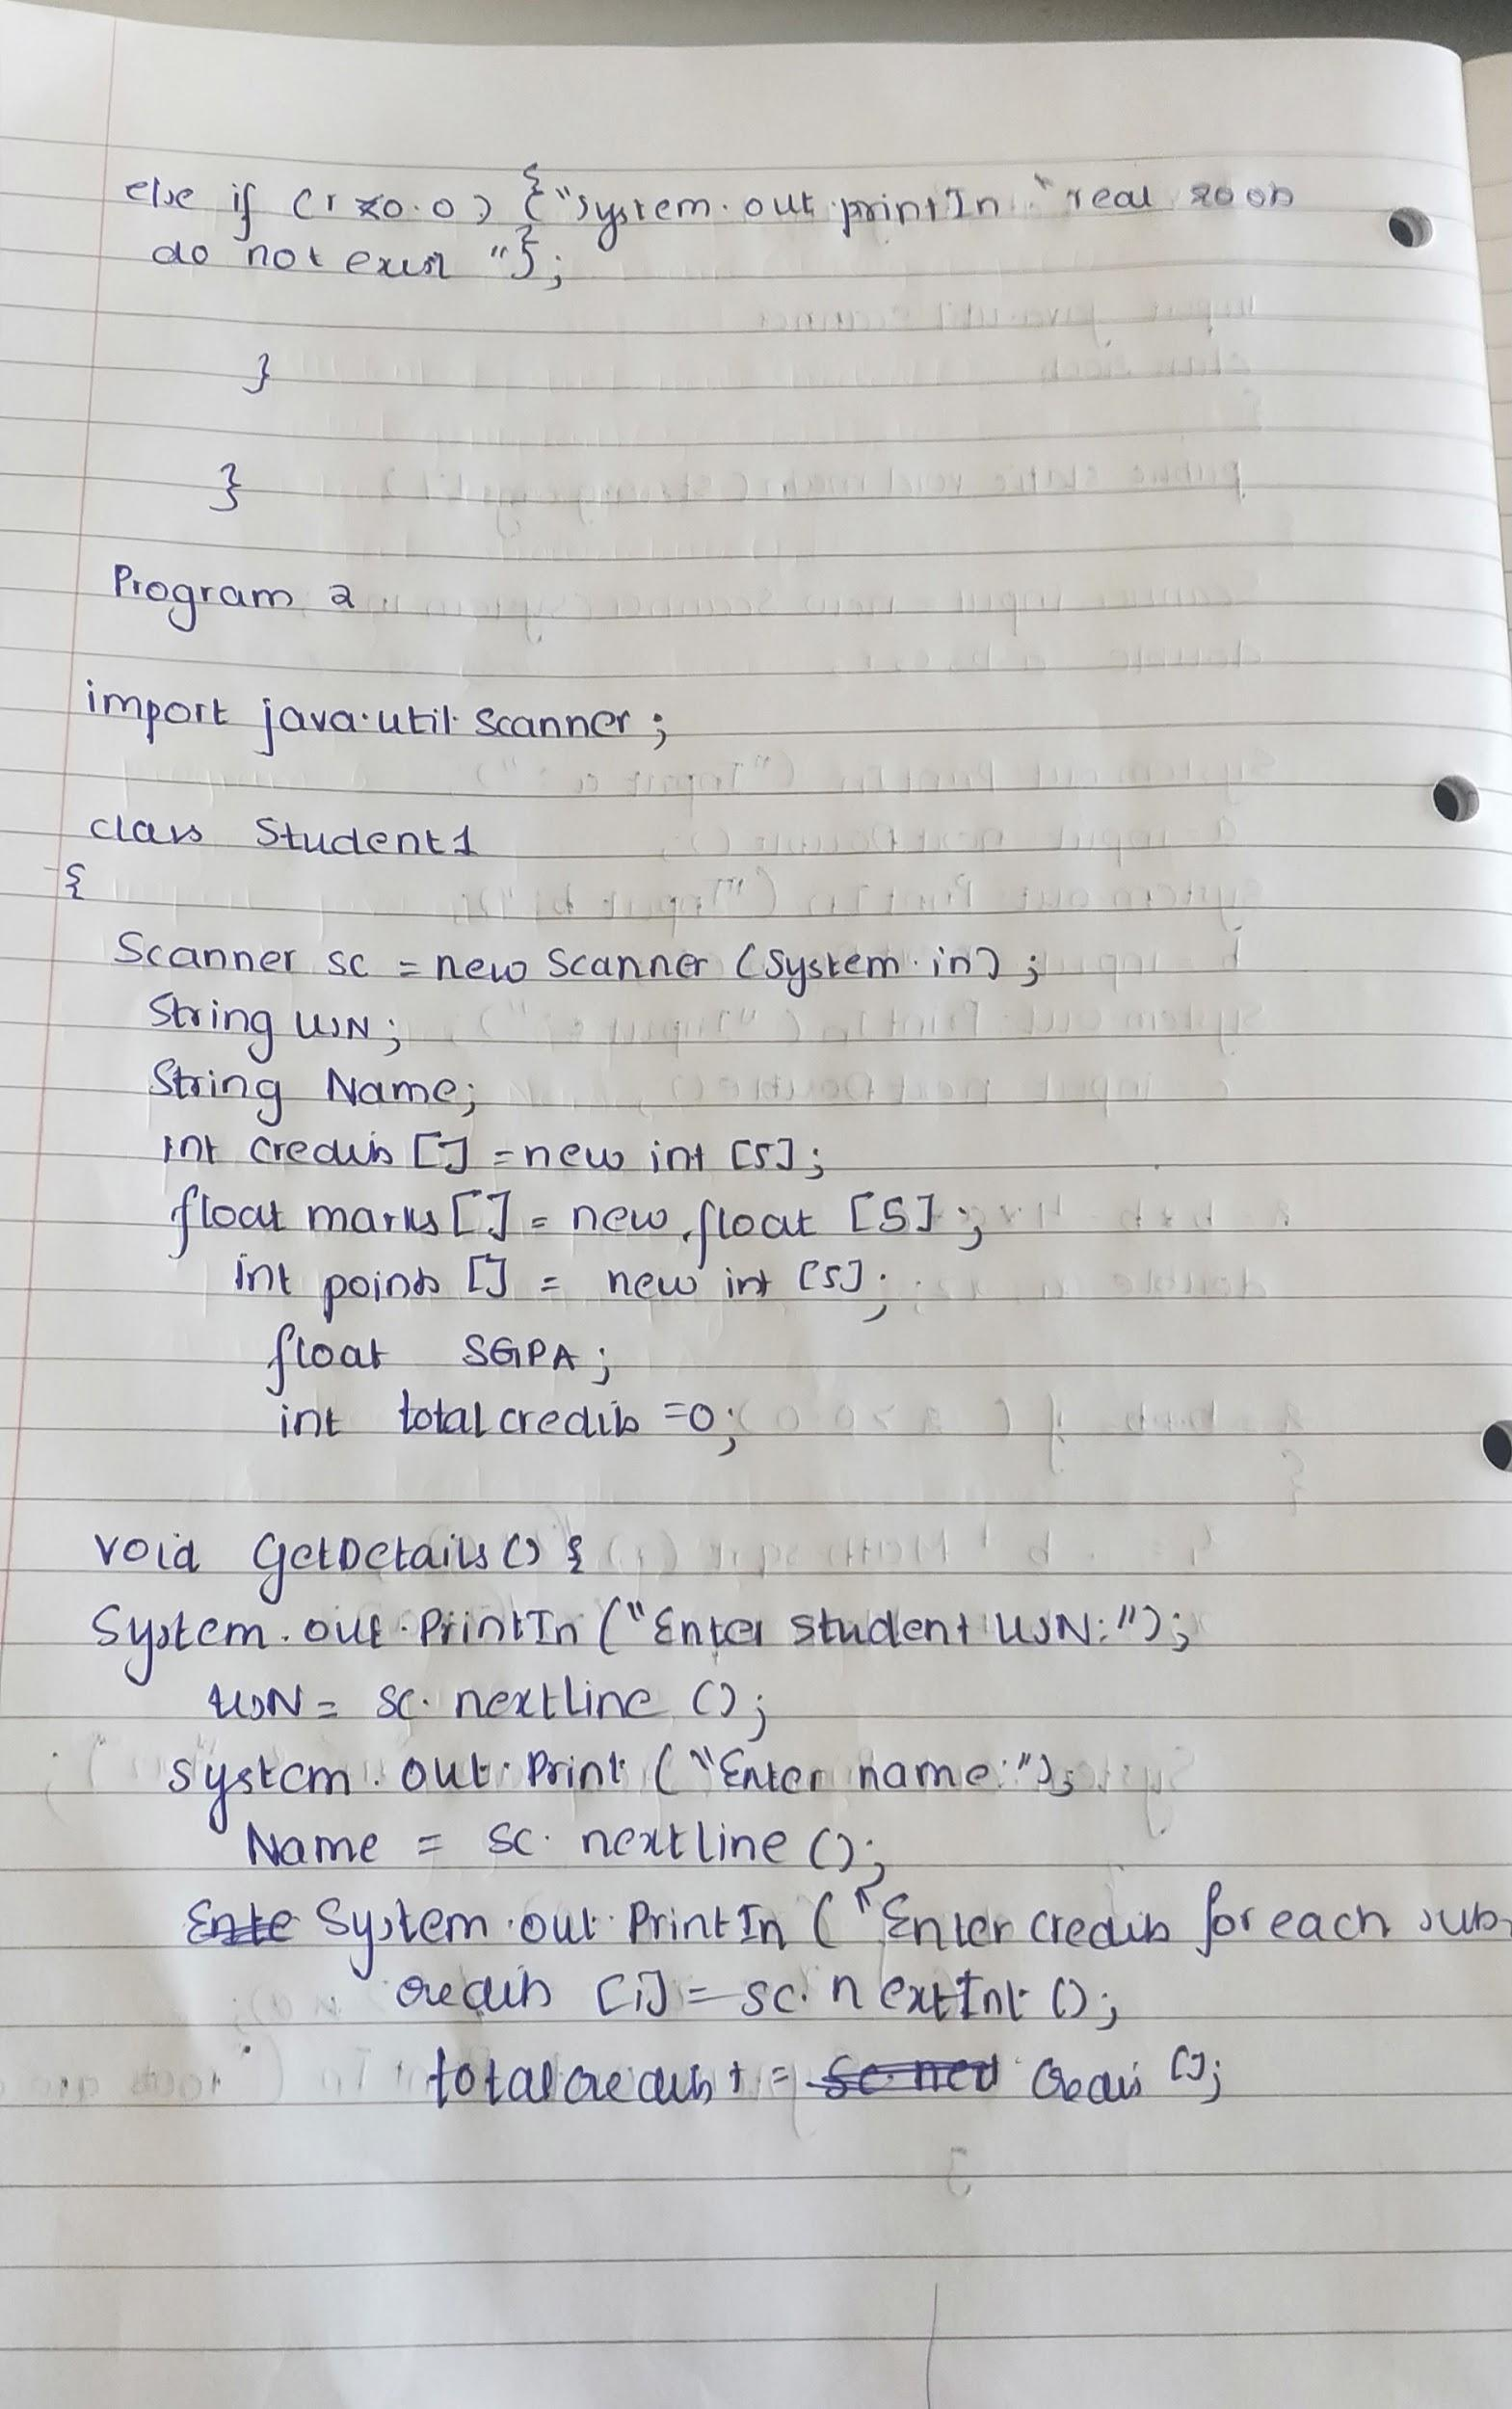 else if (r <0.0) {"System.out.printIn "real roots
do not exist "};
}
}
Program 2
import java.util.scanner;
class Student1
{
Scanner sc = new Scanner (System.in);
String USN;
String Name;
int credits [] = new int [5];
float marks [] = new float [5];
int points [] = new int [5];
float SGPA;
int totalcredits =0;
void GetDetails () {
System.out.PrintIn ("Enter student USN:");
USN = sc.nextline ();
System.out.Print ("Enter name:");
Name = sc.nextline ();
Ente System.out.PrintIn ("Enter credits for each sub
credits [i] = sc.nextInt ();
totalcredits += sc.next Credis [];